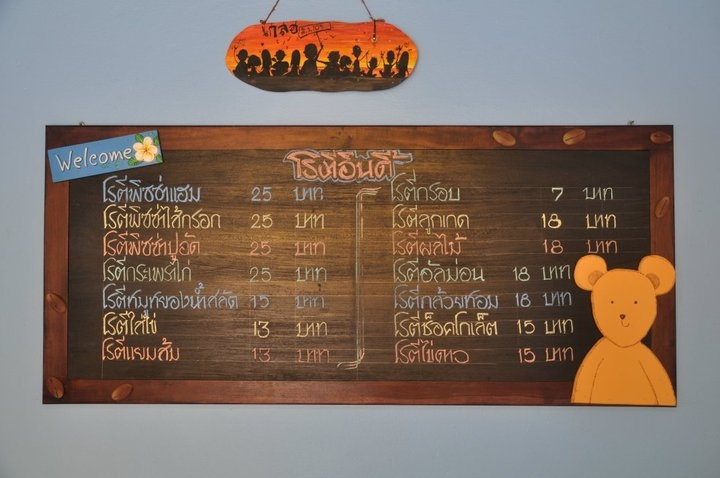 เกลอ
Welcome
โรตีอินดี้
โรตีพิซซ่าแฮม 25 บาท
โรตีพิซซ่าไส้กรอก 25 บาท
โรตีพิซซ่าปูอัด 25 บาท
โรตีกระเพราไก่ 25 บาท
โรตีหมูหยองน้ำสลัด 15 บาท
โรตีใส่ไข่ 13 บาท
โรตีแยมส้ม 13 บาท
โรตีกรอบ 7 บาท
โรตีลูกเกด 18 บาท
โรตีผลไม้ 18 บาท
โรตีอัลม่อน 18 บาท
โรตีกล้วยหอม 18 บาท
โรตีช็อคโกเล็ต 15 บาท
โรตีไข่ดาว 15 บาท